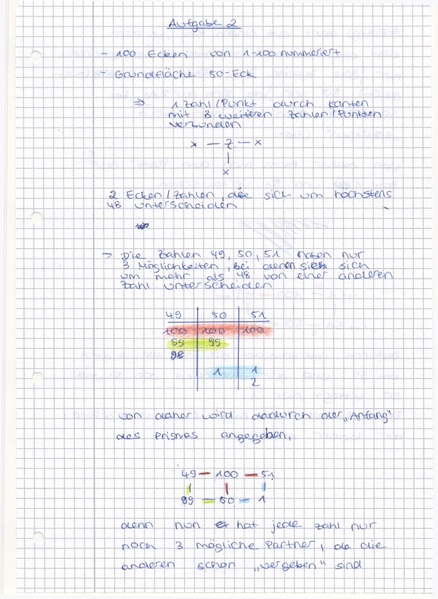 Aufgabe 2
- 100 Ecken von 1-100 nummeriert
- Grundfläche 50-Eck
⇒ 1 Zahl/Punkt durch Kanten
mit 3 weiteren Zahlen/Punkten
verbunden
x - Z - x
|
x
2 Ecken/Zahlen, die sich um höchstens
48 unterscheiden
→ Die Zahlen 49, 50, 51 haben nur
3 Möglichkeiten, bei denen sie sich
um mehr als 48 von einer anderen
Zahl unterscheiden
49 | 50 | 51
100 | 100 | 100
99 | 99
98
1 | 1
2
von daher wird dadurch der „Anfang"
des Prismas angegeben,
49 - 100 - 51
| | |
99 - 50 - 1
denn nun hat jede Zahl nur
noch 3 mögliche Partner, da die
anderen schon „vergeben" sind